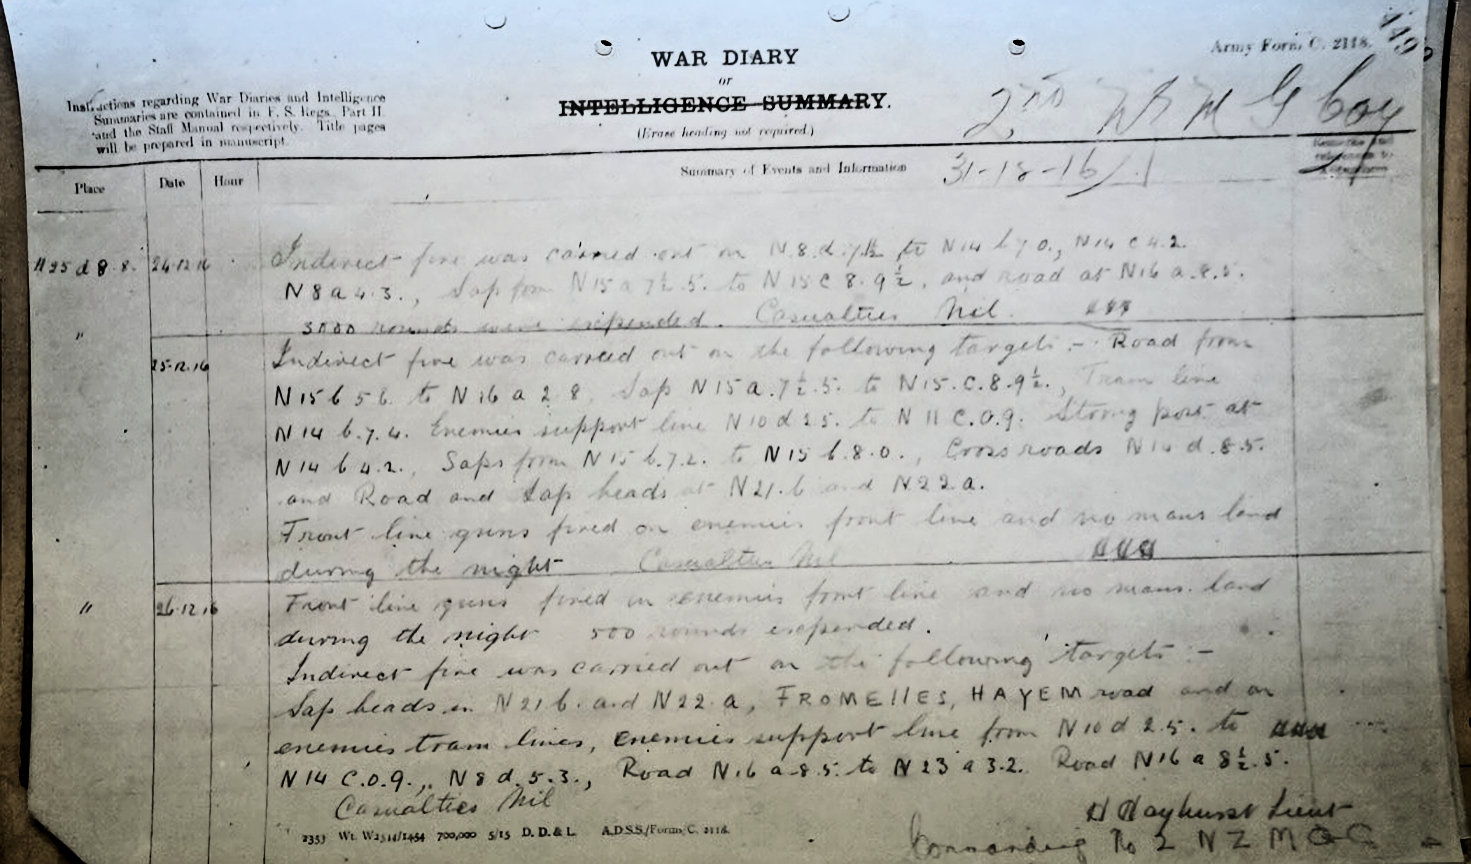 WAR DIARY
or
INTELLIGENCE SUMMARY.
(Erase heading not required.)
Army Form C. 2118.
Instructions regarding War Diaries and Intelligence
Summaries are contained in F. S. Regs., Part II.
and the Staff Manual respectively. Title pages
will be prepared in manuscript.
M G Coy
31-12-16
Place Date Hour Summary of Events and Information
N25 d 8.8. 24.12.16 Indirect fire was carried out on N.8.d.7½ to N14 b 7 0., N14 c 4.2.
N8a 4.3., Sap from N15 a 7½.5. to N15 c 8.9½, and road at N16 a.8.5.
3000 rounds were expended. Casualties Nil.
" 25.12.16 Indirect fire was carried out on the following targets :- Road from
N15 b 5 6. to N16 a 2 8. Sap N15 a.7½.5. to N15.C.8.9½., Tram line
N14 b.7.4. Enemies support line N10 d 2.5. to N 11 C.0.9. Strong post at
N14 b 4.2., Saps from N15 b.7.2. to N15 b.8.0., Cross roads N14 d.8.5.
and Road and Sap heads at N21.b and N22a.
Front line guns fired on enemies front line and no mans land
during the night Casualties Nil
" 26.12.16 Front line guns fired on enemies front line and no mans land
during the night 500 rounds expended.
Indirect fire was carried out on the following targets :-
Sap heads in N21b. and N22.a, FROMELLES, HAYEM road and on
enemies tram lines, enemies support line from N10d 2.5. to
N14 C.0.9., N8 d.5.3., Road N16 a 8.5. to N23 a 3.2. Road N16 a 8½.5.
Casualties Nil
H Hayhurst Lieut
Commanding No 2 N Z M G C
2353 Wt. W2544/1454 700,000 5/15 D. D. & L. A.D.S.S./Forms/C. 2118.